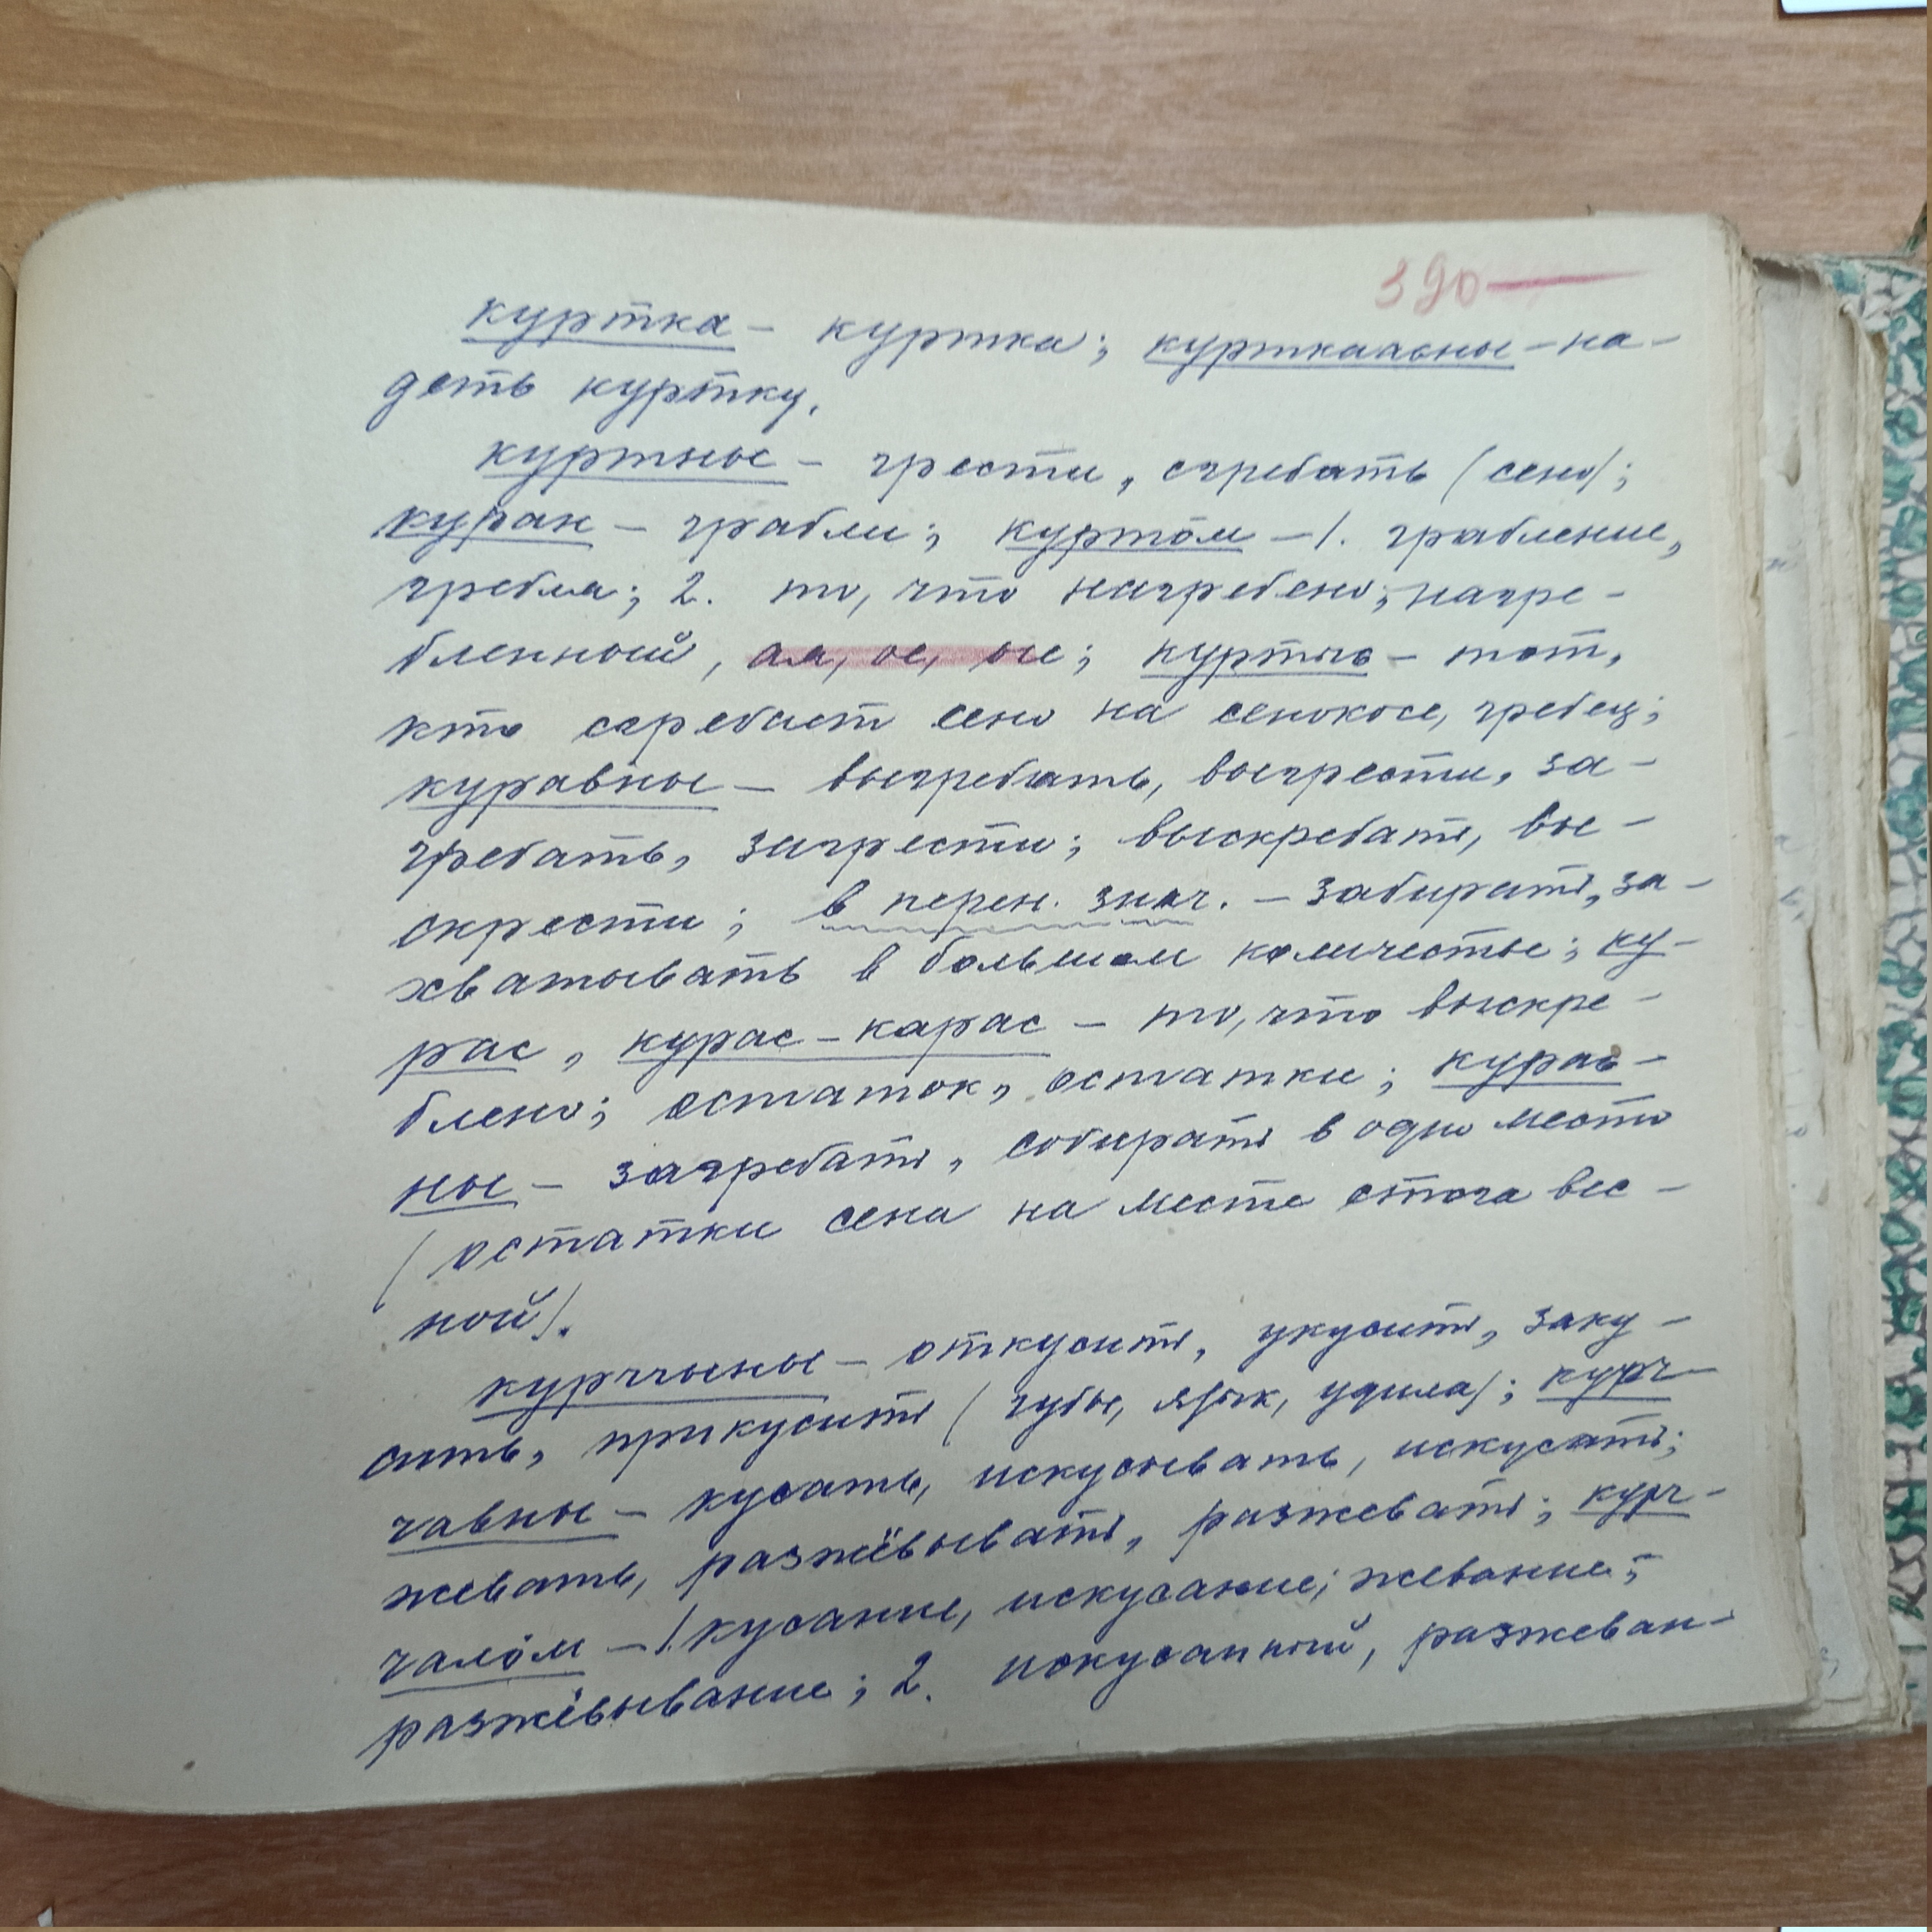 390
куртка – куртка; курткаасьны – на-
деть куртку.
куртны – грести, сгребать (сено);
куран – грабли; куртӧм – 1. грабление,
гребля; 2. то, что нагребено; нагре-
бленный, ая, ое, ые; куртысь – тот,
кто сгребает сено на сенокосе, гребец;
куравны – выгребать, выгрести, за-
гребать, загрести; выскребать, вы-
скрести; в перен. знач. – забирать, за-
хватывать в большом количестве; ку-
рас, курас-карас – то, что выскре-
блено; остаток, остатки; курась-
ны – загребать, собирать в одно место
(остатки сена на месте стога вес-
ной).
курччыны – откусить, укусить, заку-
сить, прикусить (губы, язык, удила); курч-
чавны – кусать, искусывать, искусать;
жевать, разжёвывать, разжевать; курч-
чалӧм – 1. кусание, искусание; жевание;
разжёвывание; 2. искусанный, разжеван-